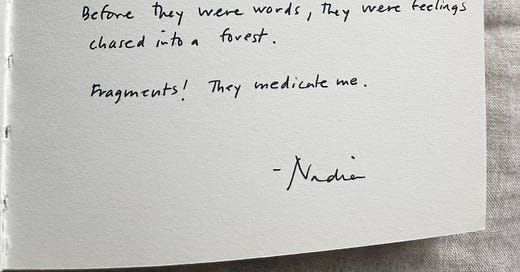 Before they were words, they were feelings
chased into a forest.
Fragments! They medicate me.
- Nadia